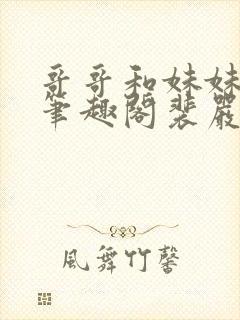 哥哥和妹妹
笔趣阁裴嚴
風舞竹馨